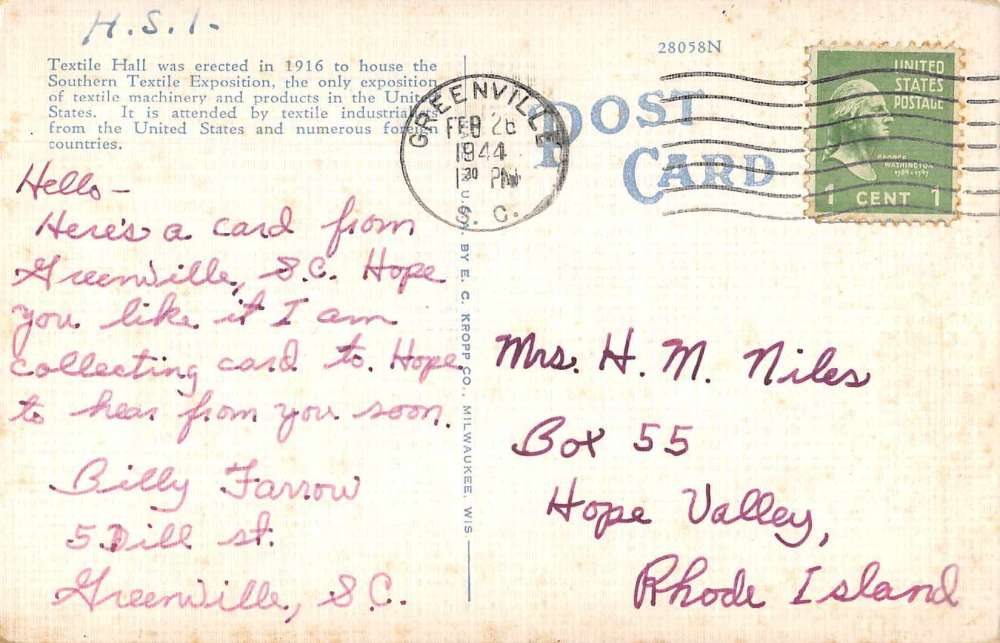 H.S.I-
Textile Hall was erected in 1916 to house the
Southern Textile Exposition, the only exposition
of textile machinery and products in the United
States. It is attended by textile industrialists
from the United States and numerous foreign
countries.
Hello -
Here's a card from
Greenville, S.C. Hope
you like it I am
collecting card to. Hope
to hear from you soon.
Billy Farrow
5 Dill st.
Greenville, S.C.
U.S.A. BY E. C. KROPP CO., MILWAUKEE, WIS
28058N
POST
CARD
GREENVILLE
FEB 26
1944
1 30 PM
S. C.
UNITED
STATES
POSTAGE
GEORGE
WASHINGTON
1789-1797
1 CENT 1
Mrs. H. M. Niles
Box 55
Hope Valley,
Rhode Island